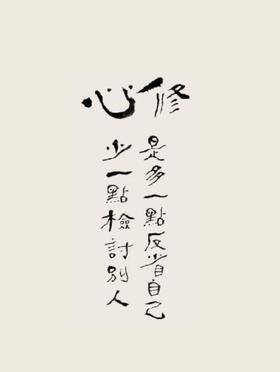 修心
是多一點反省自己
少一點檢討別人